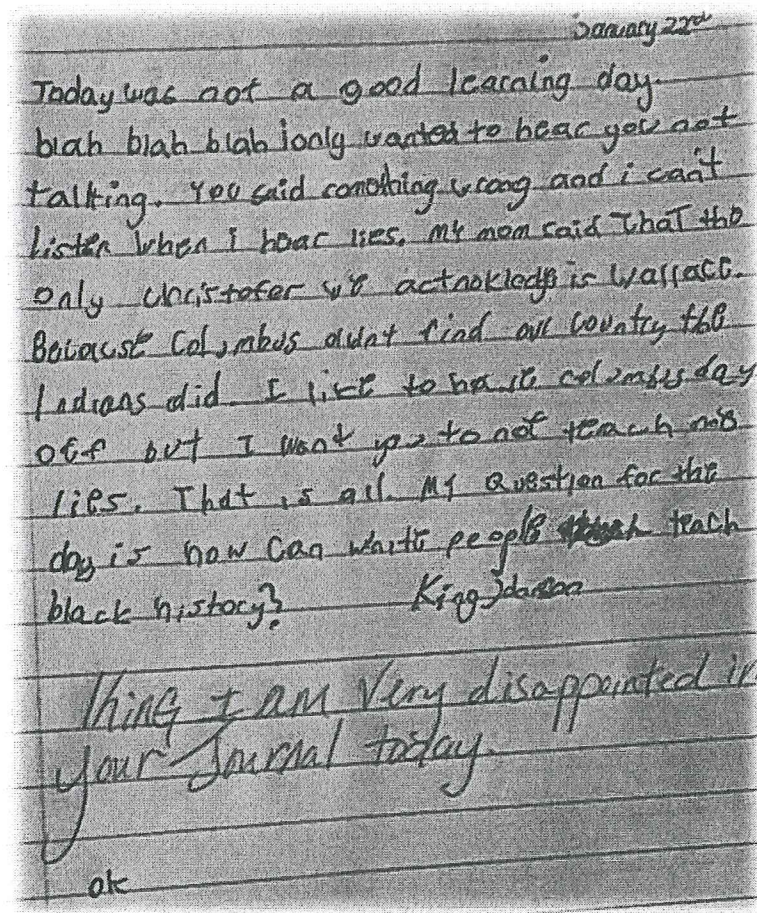 January 22nd
Today was not a good learning day.
blah blah blah ionly wanted to hear you not
talking. You said something wrong and i can't
listen when i hear lies. My mom said That the
only christofer we acknokledge is Wallace.
Because Columbus didnt find our country the
Indians did. I like to have columbus day
off but I want you to not teach me
lies. That is all. My Question for the
day is how can white people teach
black history?
King Johnson
King I am Very disappointed in
your Journal today.
ok